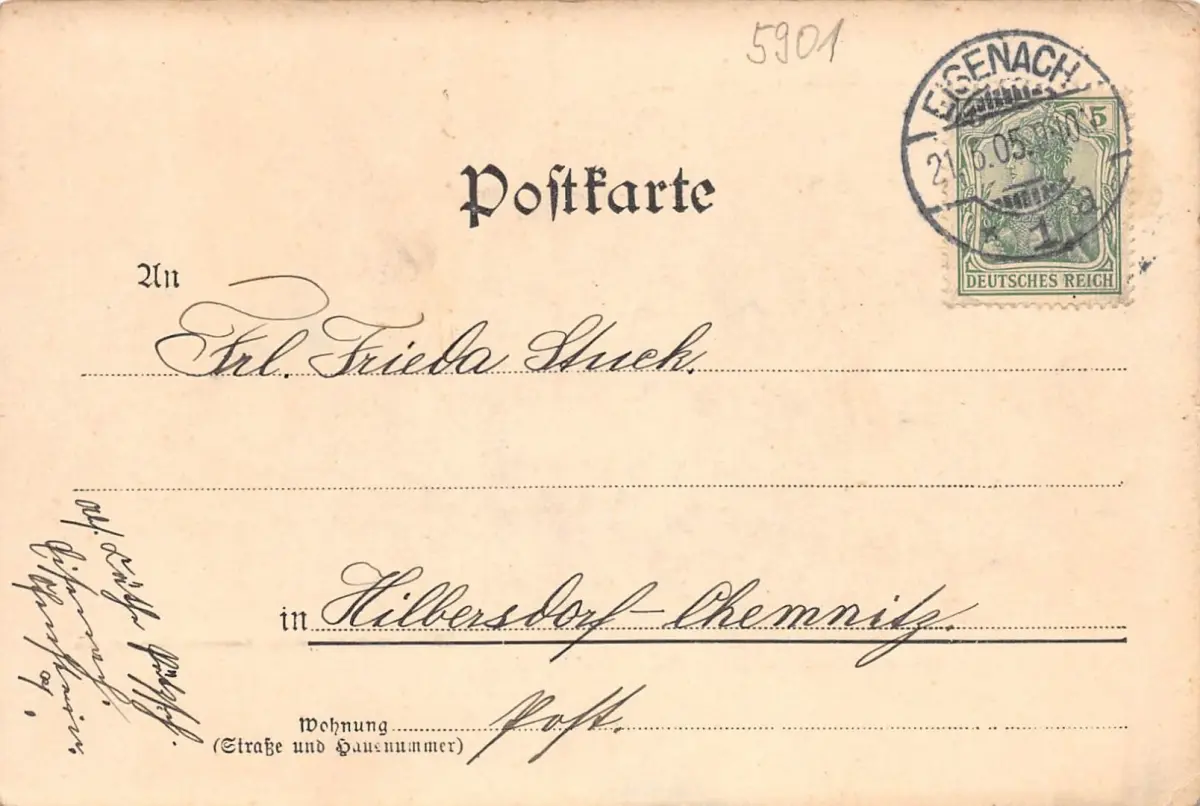 5901
EISENACH
21.6.05
* 1 a
5
DEUTSCHES REICH
Postkarte
An
Frl. Frieda Stuck.
in Hilbersdorf-Chemnitz.
Wohnung Post.
(Straße und Hausnummer)
Abs.
Eisenach.